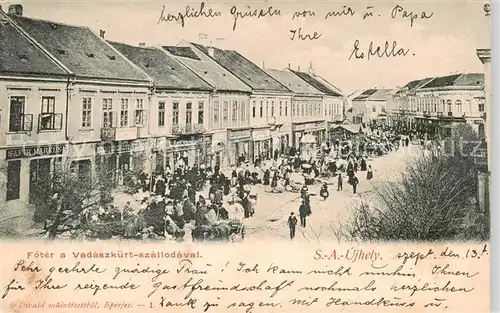 herzlichen Grüssen von mir u. Papa
Ihre
Estella.
Főtér a Vadászkürt-szállodával.
S.-A.-Ujhely, szept. den 13.
Sehr geehrte gnädige Frau! Ich kann nicht umhin, Ihnen
für Ihre reizende Gastfreundschaft nochmals herzlichen
Divald műintézetéből, Eperjes. — 1.
Dank zu sagen, mit Handkuss u.